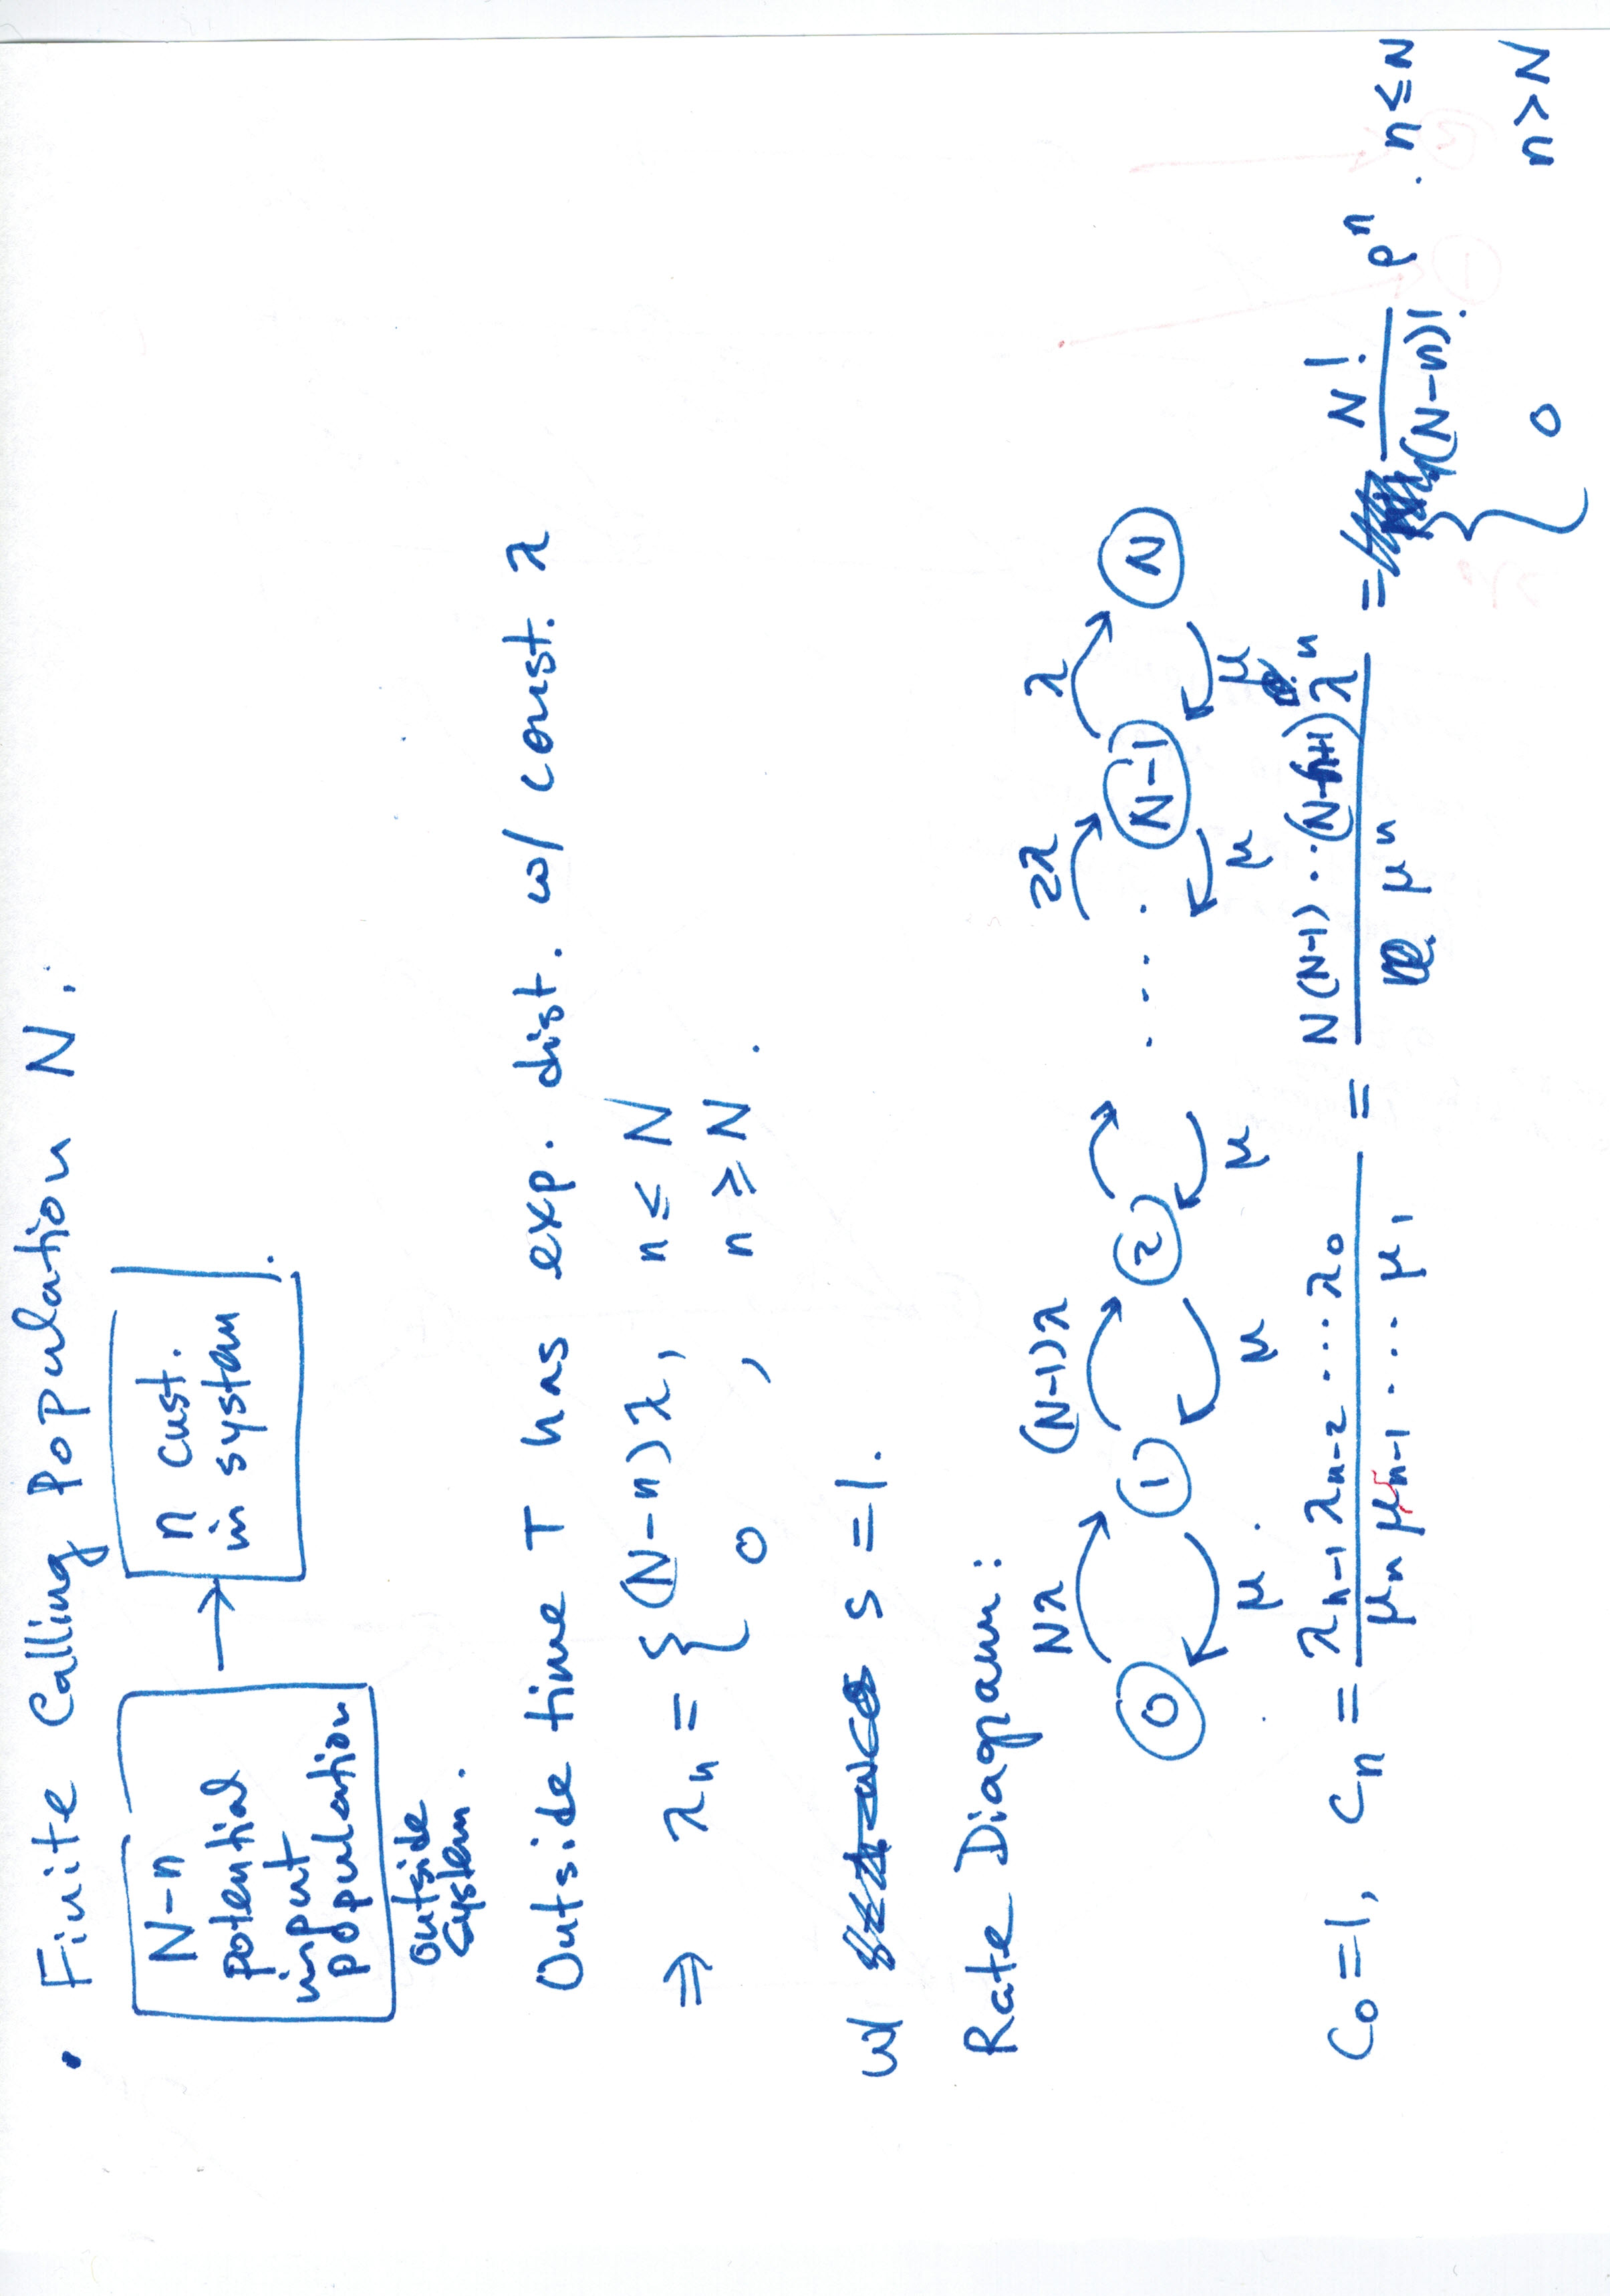 • Finite Calling Population N.
N-n potential input population
→
n cust. in system
outside system.
Outside time T has exp. dist. w/ const. λ
⇒ λn = { (N-n)λ, n ≤ N
0 , n ≥ N.
w/ s = 1.
Rate Diagram:
Nλ (N-1)λ 2λ λ
0 1 2 .... N-1 N
μ. μ μ μ μ
C0 = 1, Cn = λn-1 λn-2 ... λ0 / μn μn-1 ... μ1 = N(N-1)...(N-n+1) λ^n / μ^n = { N! / (N-n)! ρ^n . n ≤ N
0 n > N